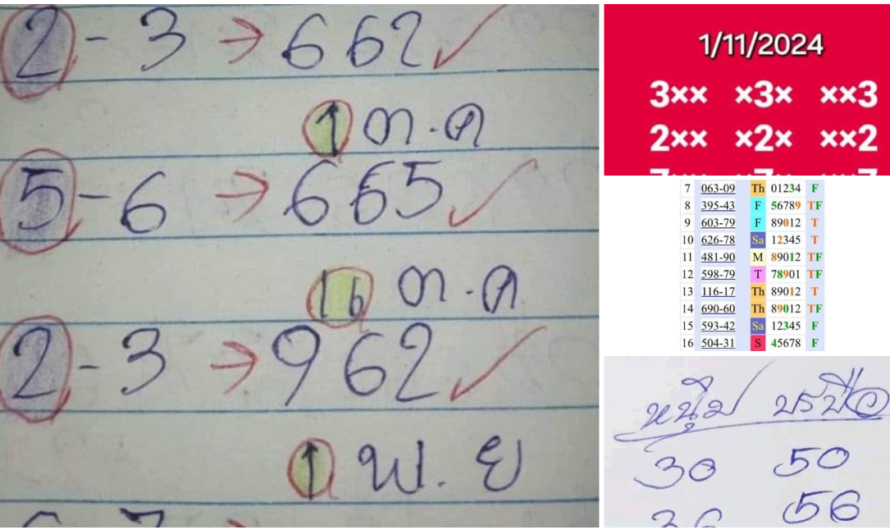 2 - 3 → 662 ✓
1 ต.ค
5 - 6 → 665 ✓
16 ต.ค
2 - 3 → 962 ✓
1 พ.ย
1/11/2024
3×× ×3× ××3
2×× ×2× ××2
7 063-09 Th 01234 F
8 395-43 F 56789 TF
9 603-79 F 89012 T
10 626-78 Sa 12345 T
11 481-90 M 89012 TF
12 598-79 T 78901 TF
13 116-17 Th 89012 T
14 690-60 Th 89012 TF
15 593-42 Sa 12345 F
16 504-31 S 45678 F
30 50
56